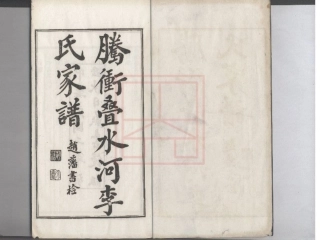 騰衝疊水河李
氏家譜
趙藩書檢